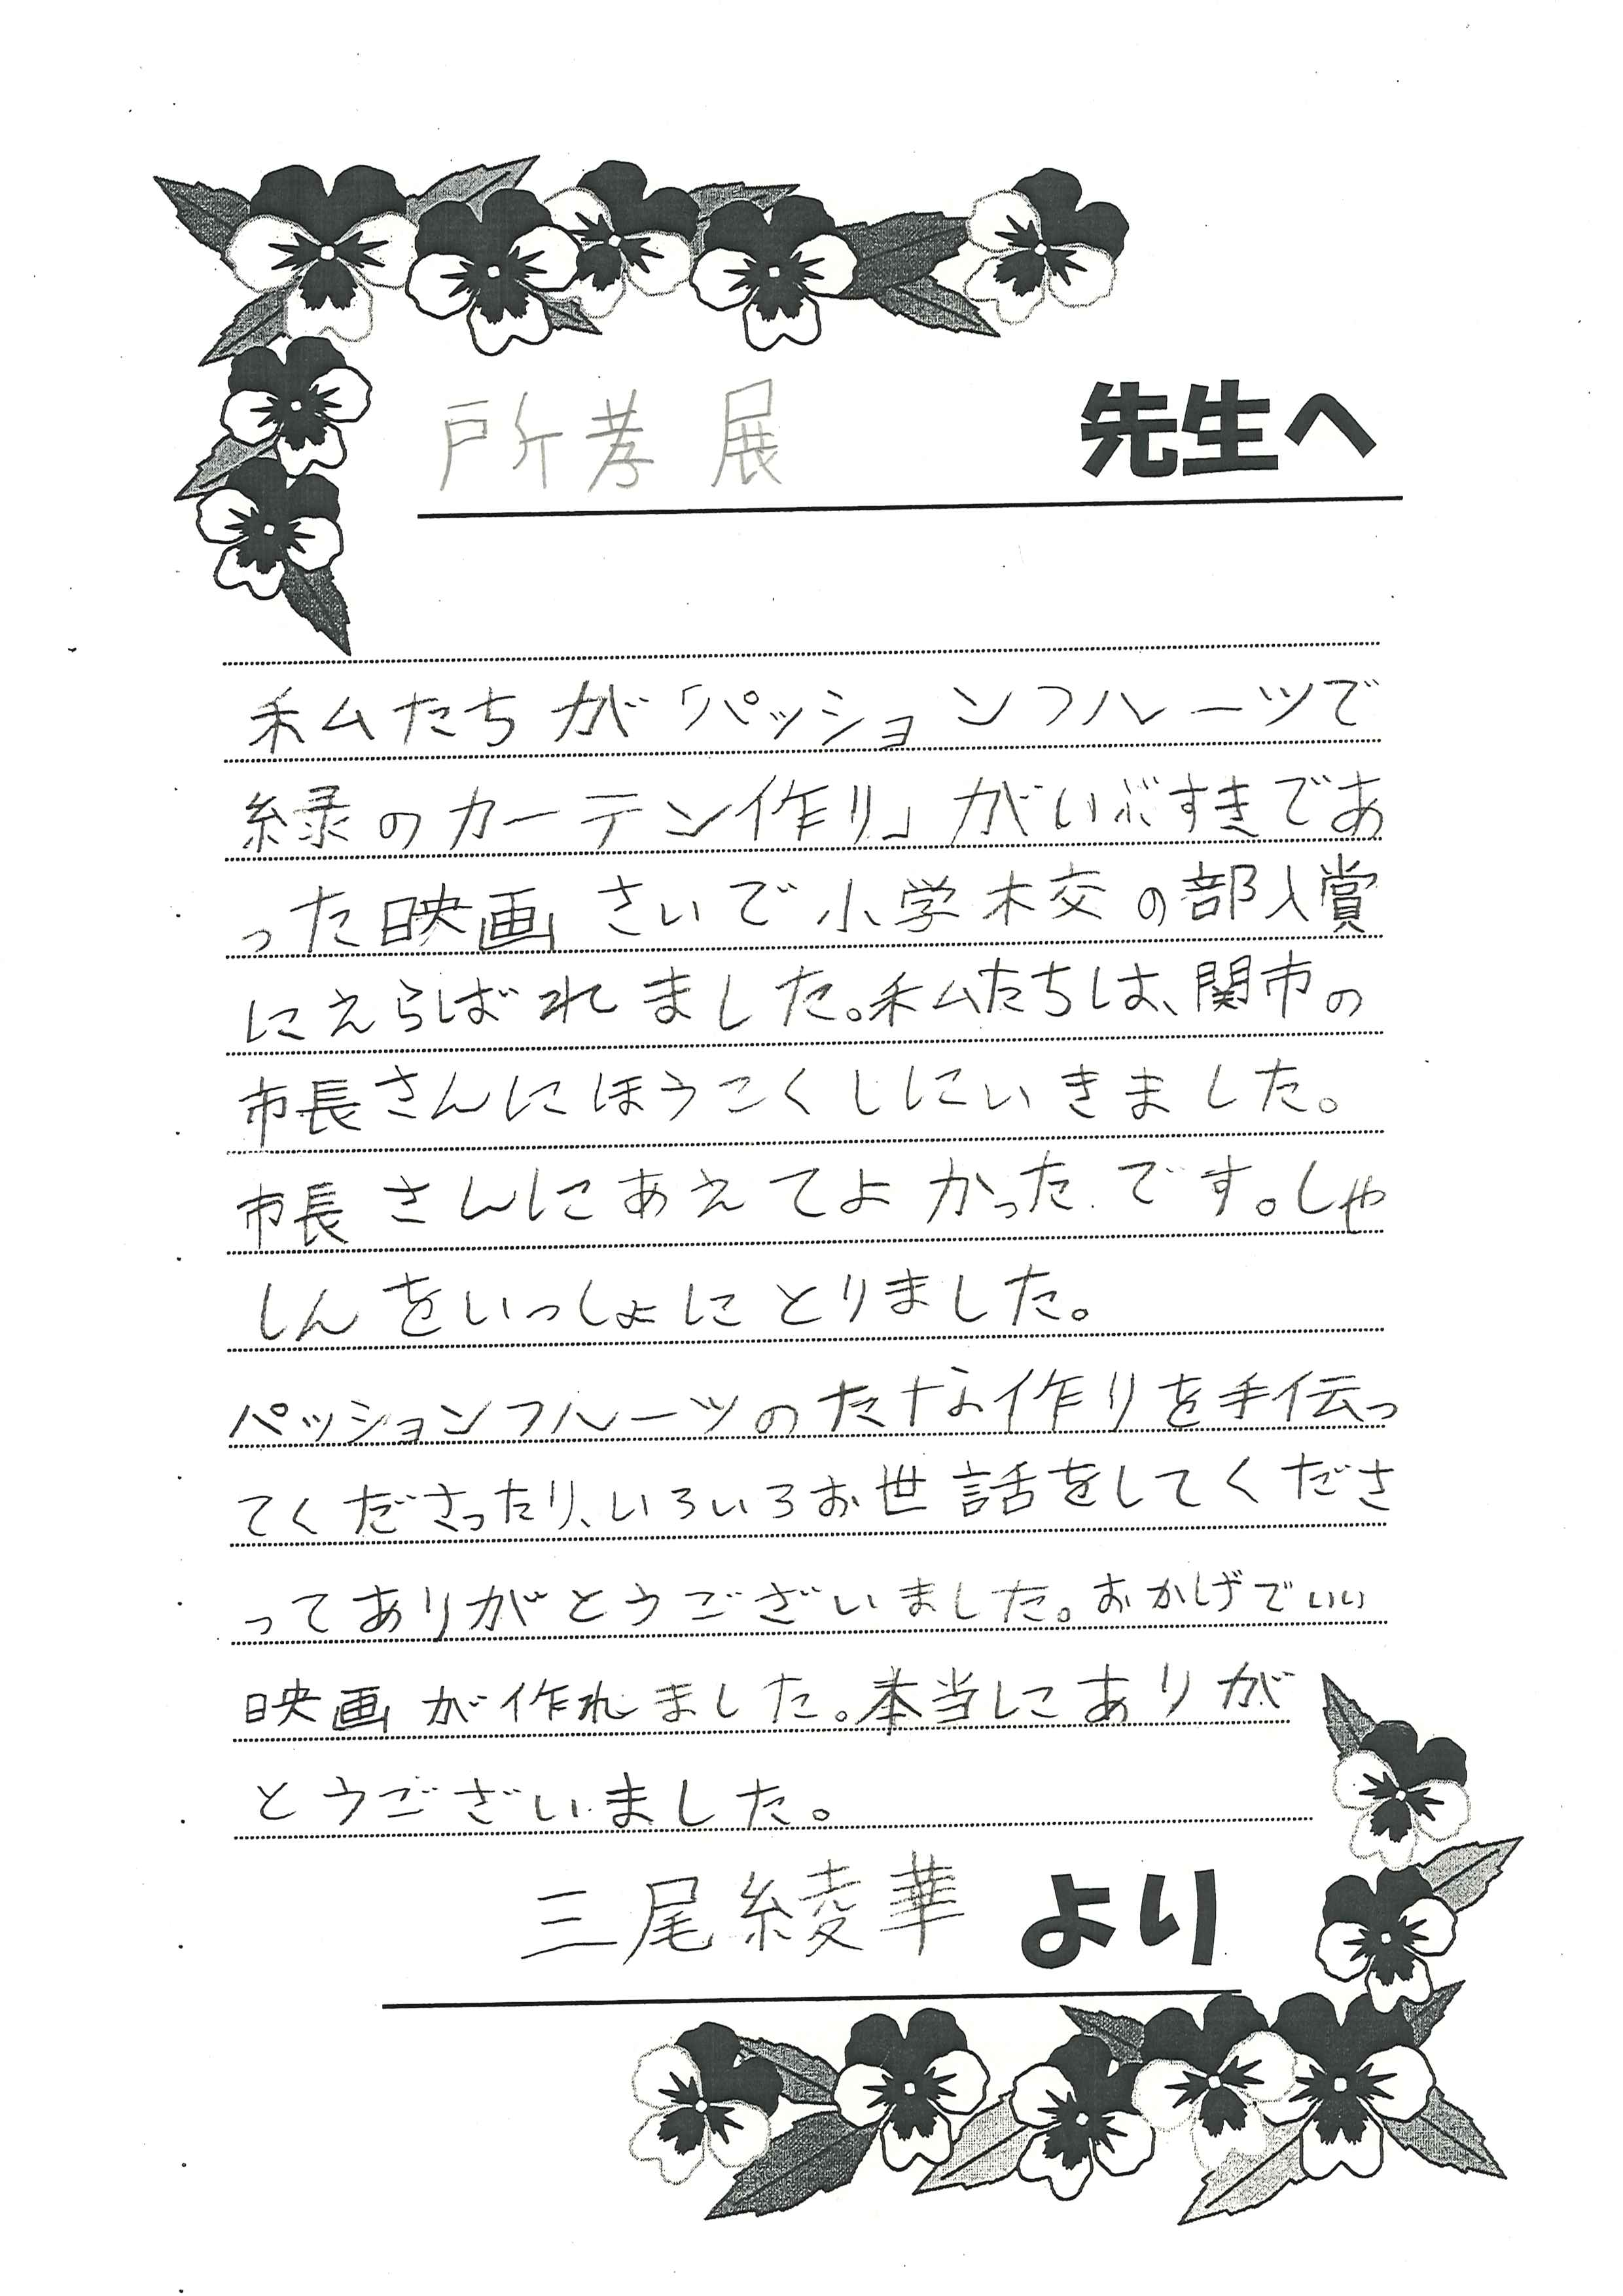 戸所孝展 先生へ
私たちが「パッションフルーツで
緑のカーテン作り」がいぶすきであ
った映画さいで小学校の部入賞
にえらばれました。私たちは、関市の
市長さんにほうこくしにいきました。
市長さんにあえてよかったです。しゃ
しんをいっしょにとりました。
パッションフルーツのたな作りを手伝っ
てくださったり、いろいろお世話をしてくださ
ってありがとうございました。おかげでいい
映画が作れました。本当にありが
とうございました。
三尾綾華 より